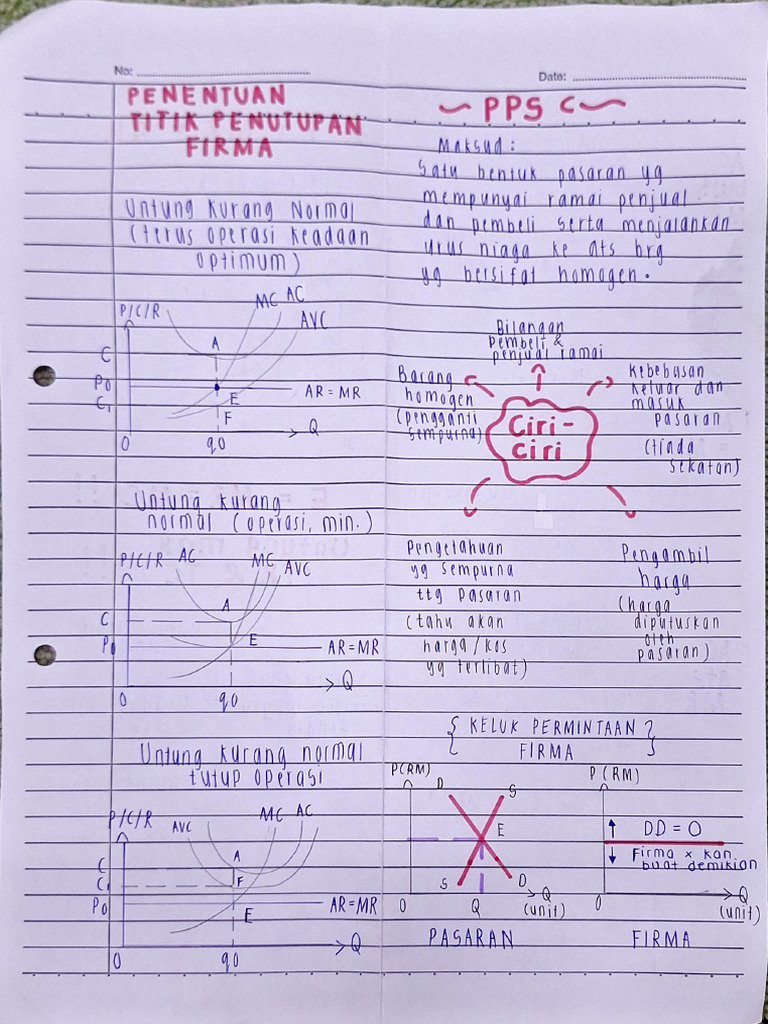 No:
Date:
PENENTUAN
TITIK PENUTUPAN
FIRMA
Untung Kurang Normal
(terus operasi keadaan
optimum)
P/C/R
MC
AC
AVC
C
A
P0
AR = MR
C1
E
F
0
q0
Q
Untung kurang
normal (operasi, min.)
P/C/R
AC
MC
AVC
A
C
P0
E
AR = MR
0
q0
Q
Untung kurang normal
tutup operasi
P/C/R
AVC
MC
AC
A
C
C1
F
P0
E
AR = MR
0
q0
Q
~ PPS C ~
Maksud :
Satu bentuk pasaran yg
mempunyai ramai penjual
dan pembeli serta menjalankan
urus niaga ke ats brg
yg bersifat homogen.
Bilangan
pembeli &
penjual ramai
Barang
homogen
(pengganti
sempurna)
Kebebasan
keluar dan
masuk
pasaran
(tinda
sekatan)
Ciri-
ciri
Pengetahuan
yg sempurna
ttg pasaran
(tahu akan
harga/kos
yg terlibat)
Pengambil
harga
(harga
diputuskan
oleh
pasaran)
{ KELUK PERMINTAAN }
FIRMA
P(RM)
D
S
E
S
D
0
Q
Q
(unit)
PASARAN
P (RM)
↑ DD = 0
↓ Firma x kan
buat demikian
0
Q
(unit)
FIRMA